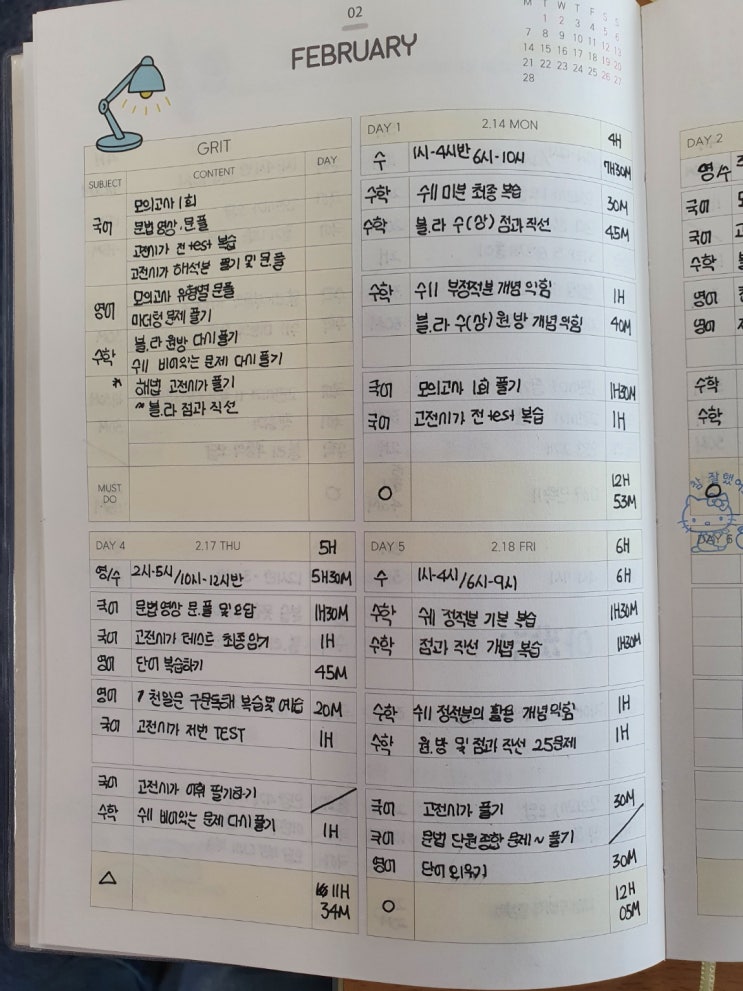 02
FEBRUARY
M T W T F S S
1 2 3 4 5 6
7 8 9 10 11 12 13
14 15 16 17 18 19 20
21 22 23 24 25 26 27
28
GRIT
SUBJECT CONTENT DAY
모의고사 1회
국어 문법 영상, 문풀
고전시가 전 test 복습
고전시가 해석본 필기 및 문풀
영어 모의고사 유형별 문풀
마더텅 문제 풀기
수학 블.라 원방 다시 풀기
수II 비어있는 문제 다시 풀기
* 해법 고전시가 풀기
~ 블.라 점과 직선
MUST DO
DAY 1 2.14 MON 4H
수 1시-4시반 6시-10시 7H30M
수학 수II 미분 최종 복습 30M
수학 블.라 수(상) 점과 직선 45M
수학 수II 부정적분 개념 익힘 1H
블.라 수(상) 원방 개념 익힘 40M
국어 모의고사 1회 풀기 1H30M
국어 고전시가 전 test 복습 1H
○ 12H 53M
DAY 4 2.17 THU 5H
영/수 2시-5시/10시-12시반 5H30M
국어 문법영상 문.풀 및 오답 1H30M
국어 고전시가 테스트 최종암기 1H
영어 단어 복습하기 45M
영어 천일문 구문독해 복습 및 예습 20M
국어 고전시가 저번 TEST 1H
국어 고전시가 어휘 필기하기
수학 수II 비어있는 문제 다시 풀기 1H
△ 11H 34M
DAY 5 2.18 FRI 6H
수 1시-4시/6시-9시 6H
수학 수II 정적분 기본 복습 1H30M
수학 점과 직선 개념 복습 1H30M
수학 수II 정적분의 활용 개념익힘 1H
수학 원.방 및 점과 직선 25문제 1H
국어 고전시가 풀기 30M
국어 문법 단원종합 문제~ 풀기
영어 단어 외우기 30M
○ 12H 05M
DAY 2
영/수
국어
국어
수학
영어
영어
수학
수학
참 잘했어
DAY 6